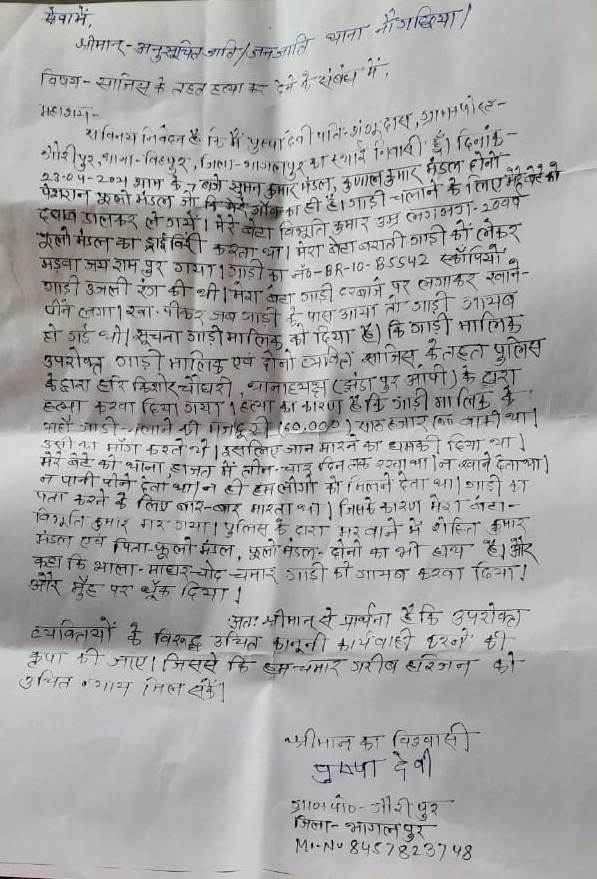 सेवा में,
श्रीमान्-अनुसूचित जाति/जनजाति थाना नौगछिया।
विषय- साजिस के तहत हत्या कर देने के संबंध में,
महाशय-
सविनय निवेदन है कि मैं पुष्पा देवी पति-शंभू दास, ग्राम पोस्ट-
गौरीपुर, थाना-बिहपुर, जिला-भागलपुर का स्थाई निवासी हूँ। दिनांक-
23-04-2021 शाम के 7 बजे सुमन कुमार मंडल, कुणाल कुमार मंडल दोनों
पेशरान फूलो मंडल जो कि मेरे गाँव का ही है। गाड़ी चलाने के लिए मेरे बेटे को
दवाब डालकर ले गये। मेरे बेटा विभूति कुमार उम्र लगभग-20 वर्ष
फूलो मंडल का ड्राईविंरी करता था। मेरा बेटा बराती गाड़ी को लेकर
मड़वा जय राम पुर गया। गाड़ी का नं०-BR-10-B5542 स्कॉर्पियो
गाड़ी उजली रंग की थी। मेरा बेटा गाड़ी दरबाजे पर लगाकर खाने-
पीने लगा। खा-पीकर जब गाड़ी के पास आया तो गाड़ी गायब
हो गई थी। सूचना गाड़ी मालिक को दिया है। कि गाड़ी मालिक
उपरोक्त गाड़ी मालिक एवं दोनों व्यक्ति साजिस के तहत पुलिस
के द्वारा हरि किशोर चौधरी, थानाध्यक्ष (झंडा पुर ओपी) के द्वारा
हत्या करवा दिया गया। हत्या का कारण है कि गाड़ी मालिक के
यहाँ गाड़ी-चलाने की मजदूरी (60,000) साठ हजार रू० बांकी था।
उसी का माँग करते थे। इसलिए जान मारने का धमकी दिया था।
मेरे बेटे को थाना हाजत में तीन-चार दिन तक रखा था। न खाने देता था।
न पानी पीने देता था। न ही हम लोगों को मिलने देता था। गाड़ी का
पता करने के लिए बार-बार मारता था। जिसके कारण मेरा बेटा-
विभूति कुमार मर गया। पुलिस के द्वारा मरवाने में रोहित कुमार
मंडल एवं पिता-फूलो मंडल, फूलो मंडल-दोनों का भी हाथ है। और
कहा कि शाला-माधर-चोद-चमार गाड़ी को गायब करवा दिया।
और मुँह पर थूँक दिया।
अतः श्रीमान् से प्रार्थना है कि उपरोक्त
व्यक्तियों के विरूद्ध उचित कानूनी कार्यवाही करने की
कृपा की जाए। जिससे कि हम चमार गरीब हरिजन को
उचित न्याय मिल सकें।
श्रीमान का विश्वासी
पुष्पा देवी
ग्राम पो०-गौरीपुर
जिला-भागलपुर
Mo-No 8457823748